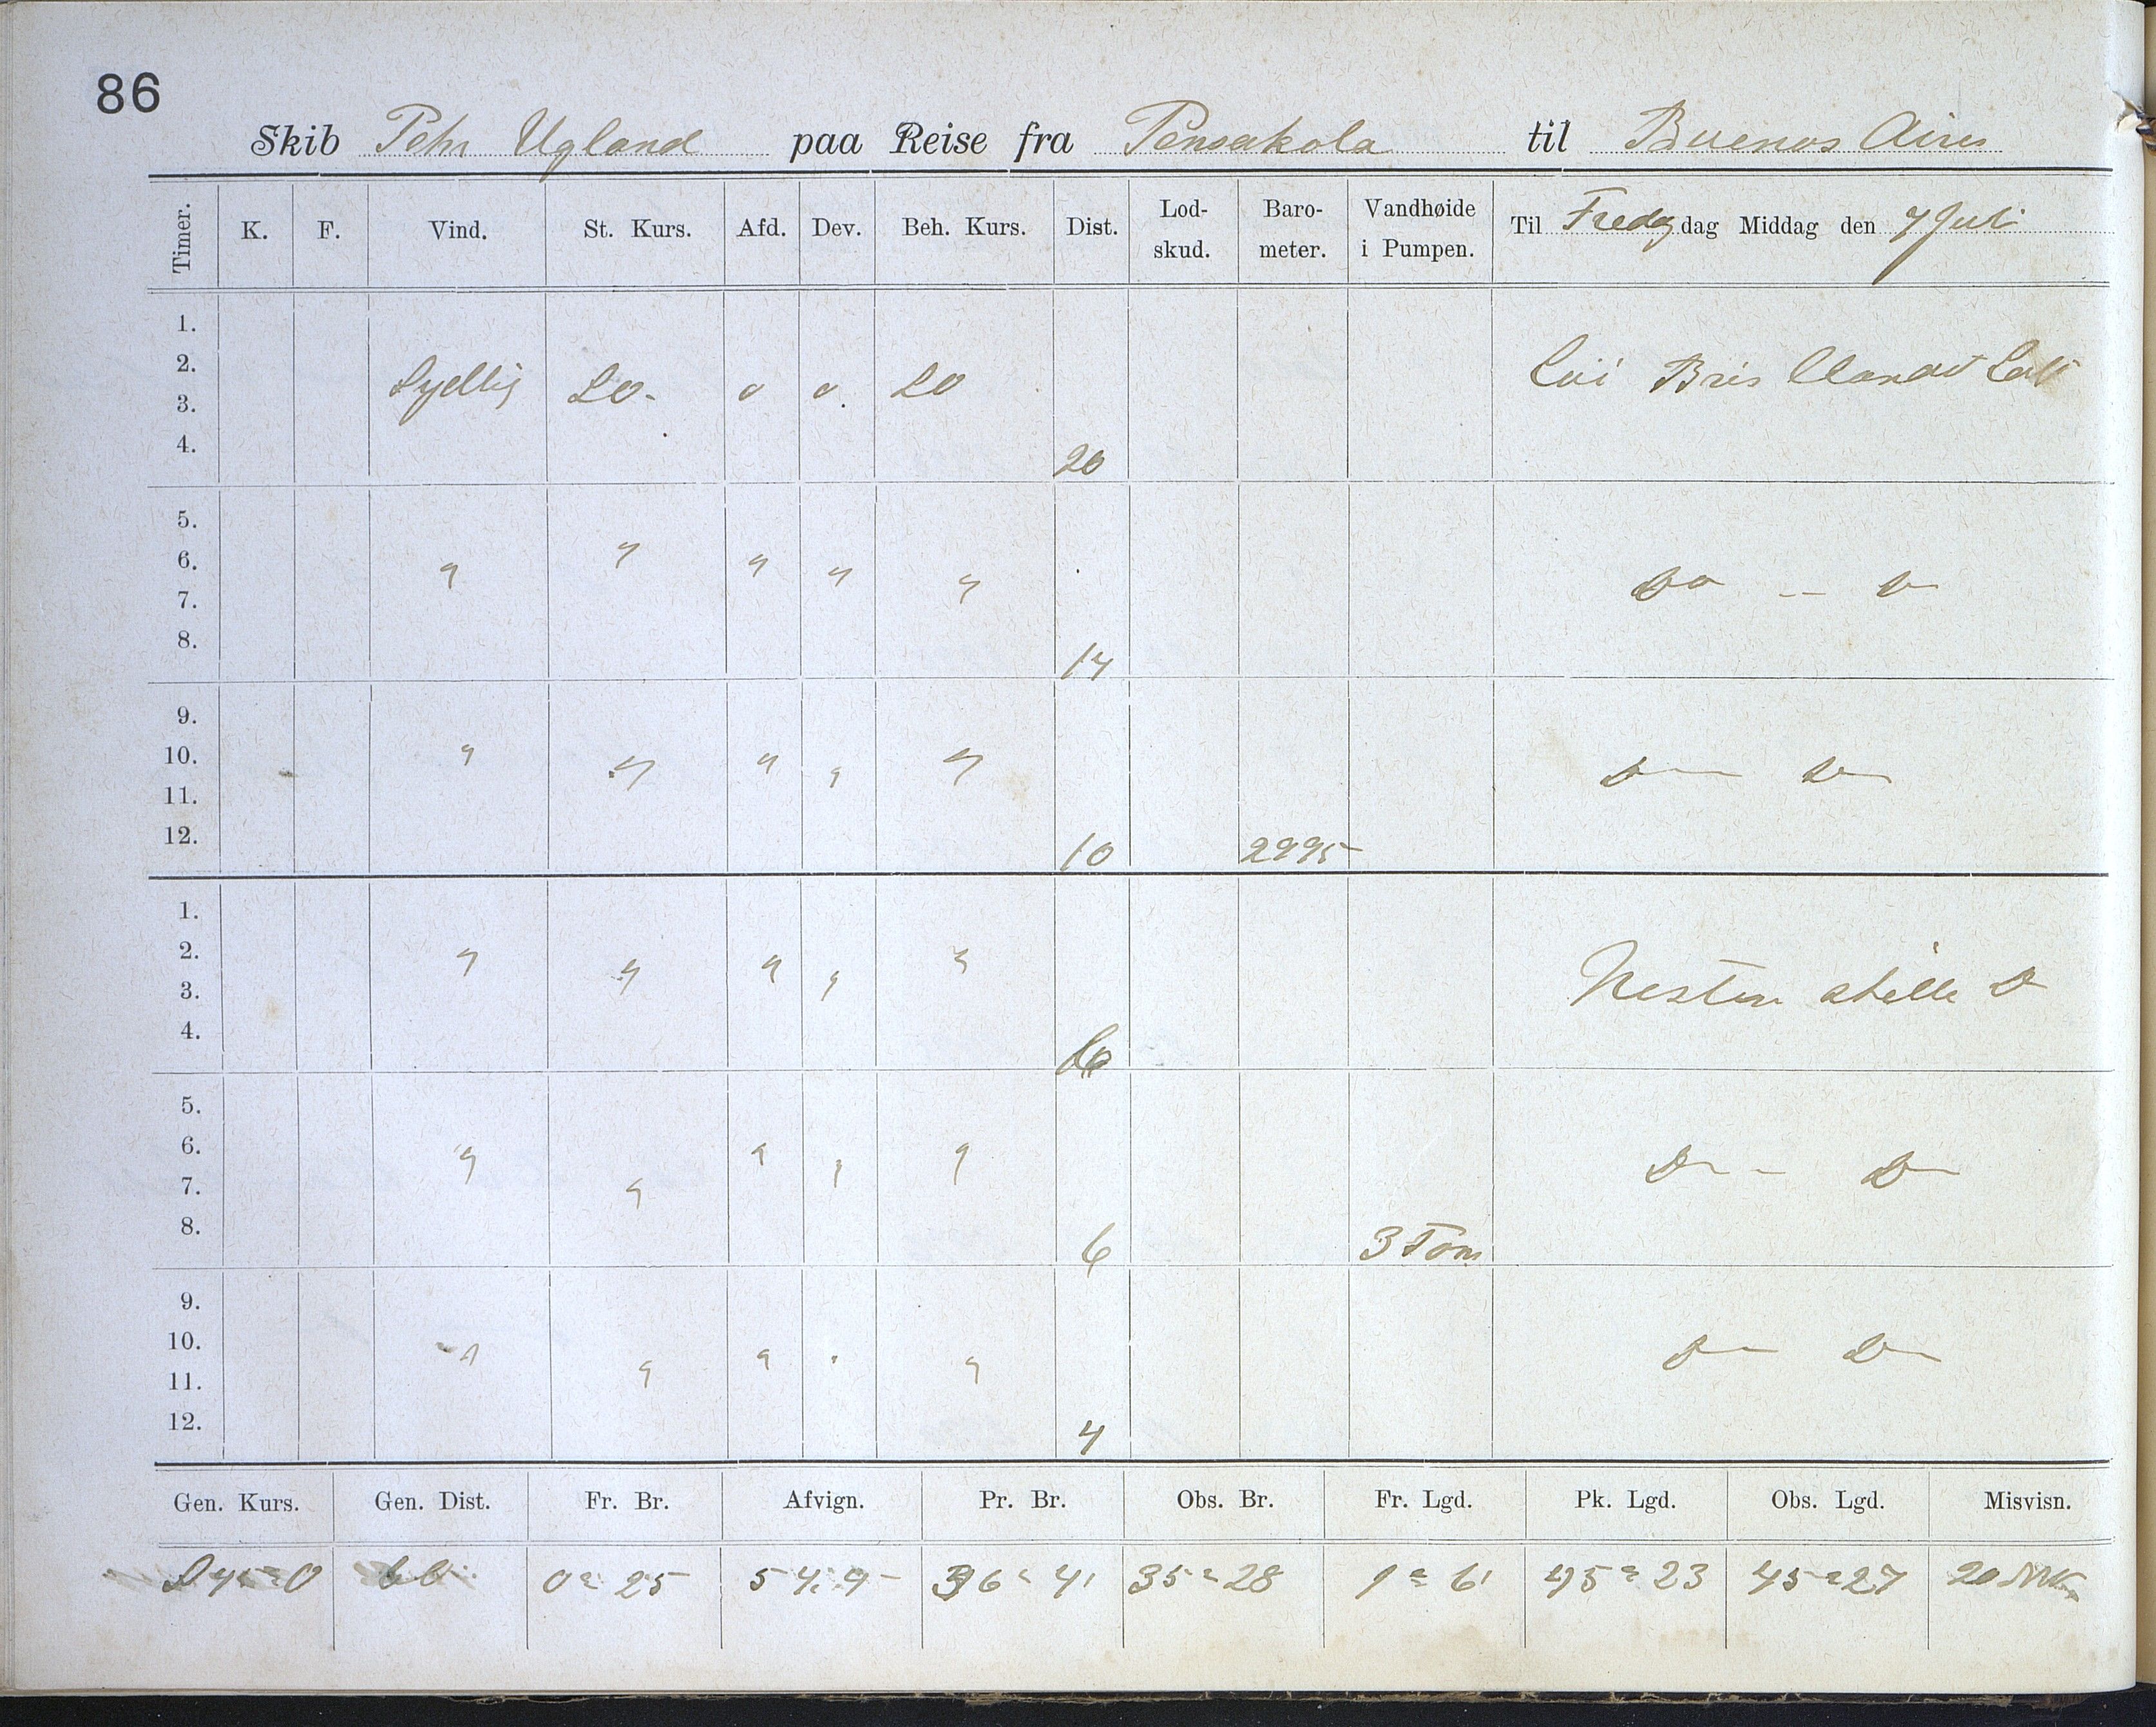 86
Skib Pehr Ugland paa Reise fra Pensakola til Buenos Aires
Timer. K. F. Vind. St. Kurs. Afd. Dev. Beh. Kurs. Dist. Lod-skud. Baro-meter. Vandhøide i Pumpen. Til Fredag dag Middag den 7 Juli
1.
2. Sydlig SO. 0 0. SO Bris
3.
4. 20
5.
6. " " " " " Do -- D
7.
8. 14
9.
10. " " " " " D— D—
11.
12. 10 2995
1.
2. " " " " " Nesten stille D
3.
4.
5.
6. " " " " " D-- D—
7.
8. 6 3 Tom
9.
10. " " " " " D— D—
11.
12. 4
Gen. Kurs. Gen. Dist. Fr. Br. Afvign. Pr. Br. Obs. Br. Fr. Lgd. Pk. Lgd. Obs. Lgd. Misvisn.
0° 25 36° 41 35° 28 1° 6' 45° 23 45° 27